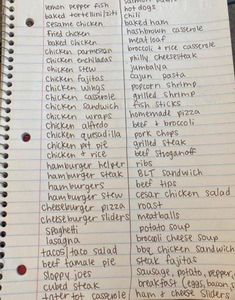 lemon pepper fish
baked tortellini/ziti
sesame chicken
fried chicken
baked chicken
chicken parmesan
chicken enchiladas
chicken stew
chicken fajitas
chicken wings
chicken casserole
chicken sandwich
chicken wraps
chicken alfredo
chicken quesadilla
chicken pot pie
chicken + rice
hamburger helper
hamburger steak
hamburgers
hamburger stew
cheeseburger pizza
cheeseburger sliders
spaghetti
lasagna
tacos/taco salad
beef tamale pie
sloppy joes
cubed steak
tater tot casserole
hot dogs
chili
baked ham
hashbrown casserole
meatloaf
broccoli + rice casserole
philly cheesesteak
jumbalya
cajun pasta
popcorn shrimp
grilled shrimp
fish sticks
homemade pizza
beef + broccoli
pork chops
grilled steak
beef stroganoff
ribs
BLT sandwich
beef tips
cesar chicken salad
roast
meatballs
potato soup
broccoli cheese soup
bbq chicken sandwich
steak fajitas
sausage, potato, pepper,
breakfast (eggs, bacon,
ham & cheese sliders